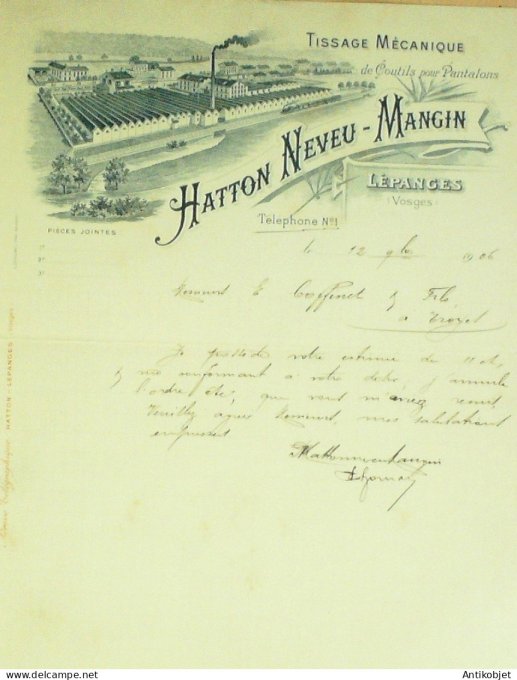 TISSAGE MÉCANIQUE
de Coutils pour Pantalons
HATTON NEVEU - MANGIN
LÉPANGES
(Vosges)
Téléphone No 1
PIÈCES JOINTES
1°
2°
3°
le 12 9bre 1906
Messieurs E Coffinet & Fils
a Troyes
Je possède votre estimée de 11 ct,
& me conformant a votre désir, j'annule
l'ordre été, que vous m'avez remis
Veuillez agréer Messieurs, mes salutations
empressées
Hatton neveu Mangin
HATTON - LÉPANGES Vosges
Antikobjet